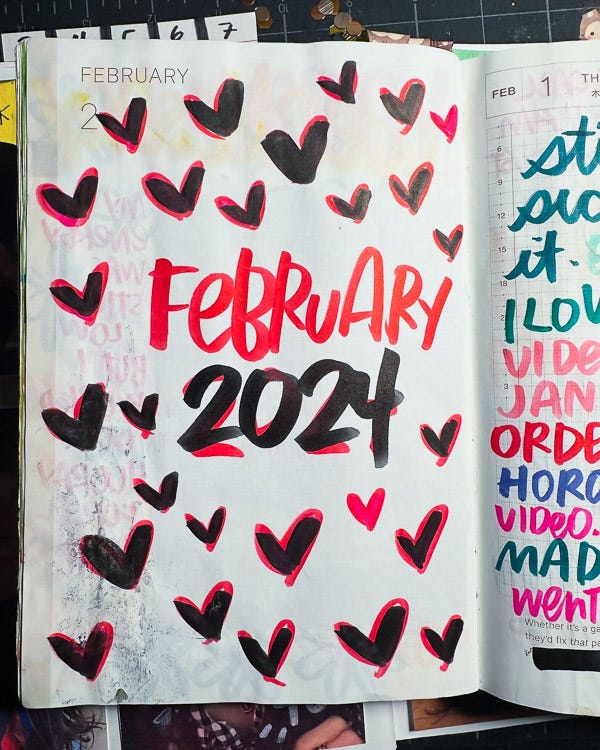 4 5 6 7
FEBRUARY
2
FEBRUARY
2024
FEB 1 TH
木
6
9
12
15
18
it.
I LOV
VIDE
JAN
ORDE
HORO
VIDEO.
MAD
went
Whether it's a ga
they'd fix that pa